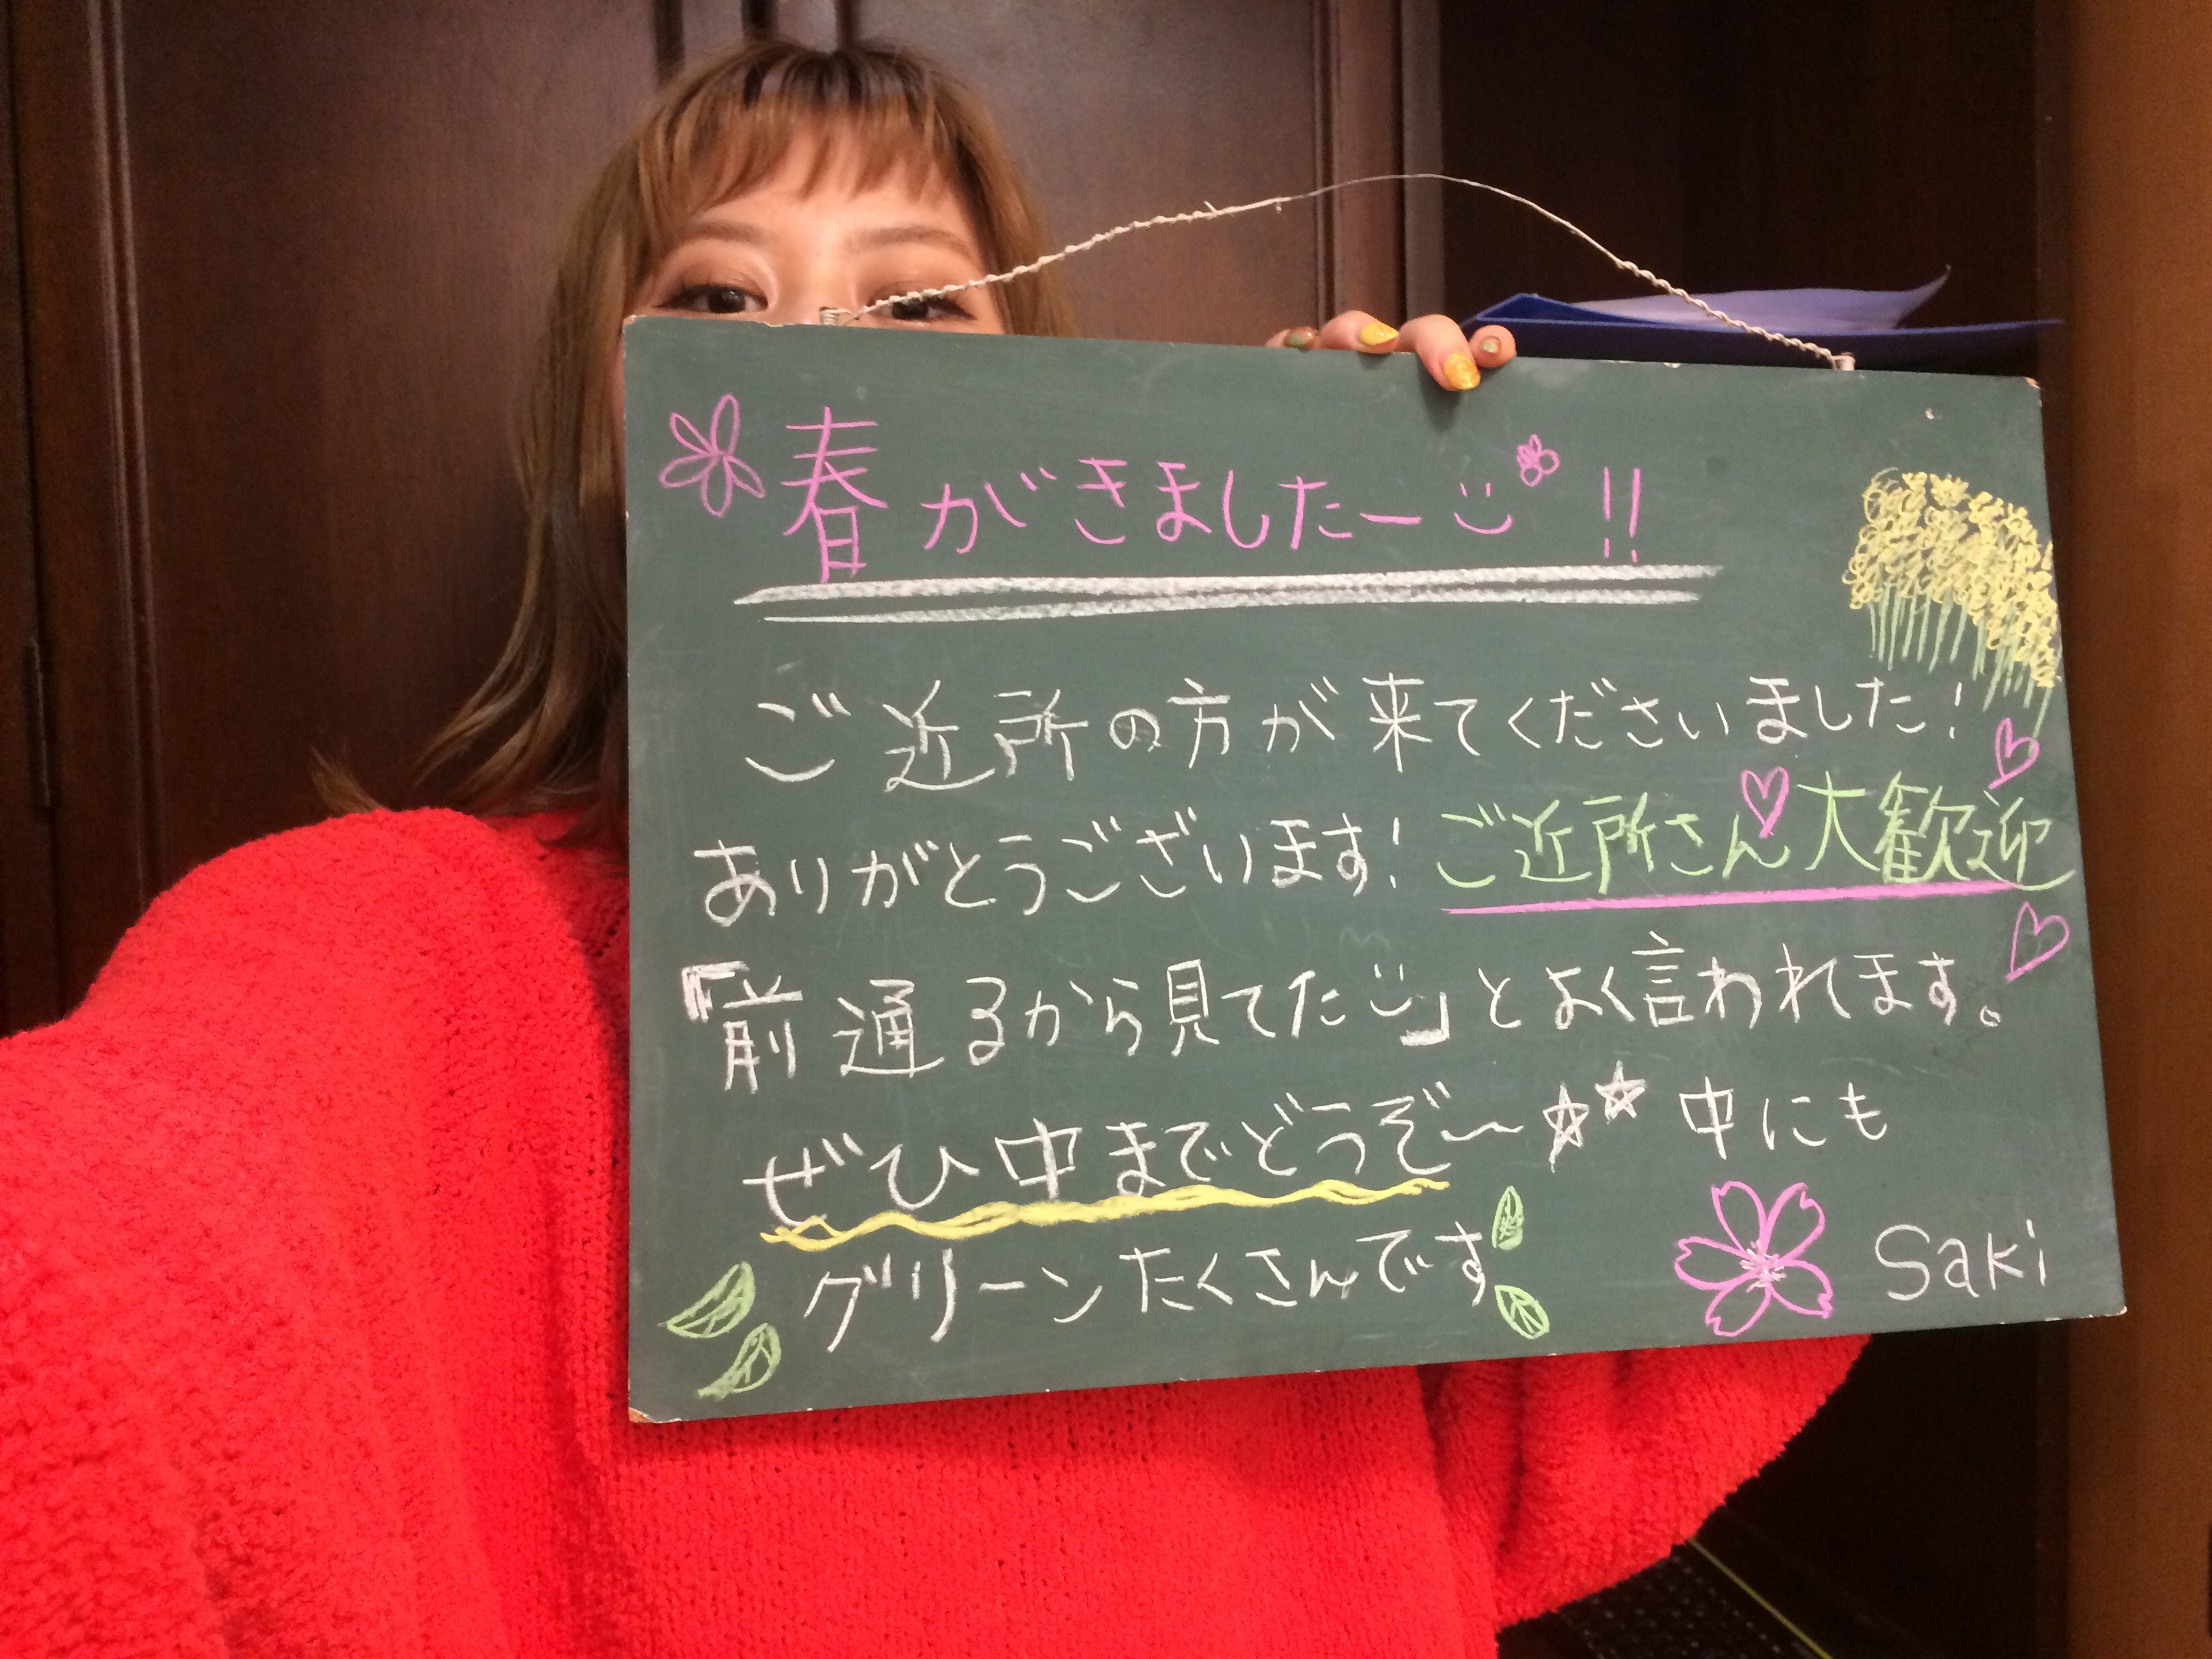 春がきましたー!!
ご近所の方が来てくださいました!
ありがとうございます!ご近所さん大歓迎
『前通るから見てた」とよく言われます。
ぜひ中までどうぞ〜☆☆ 中にも
グリーンたくさんです
Saki